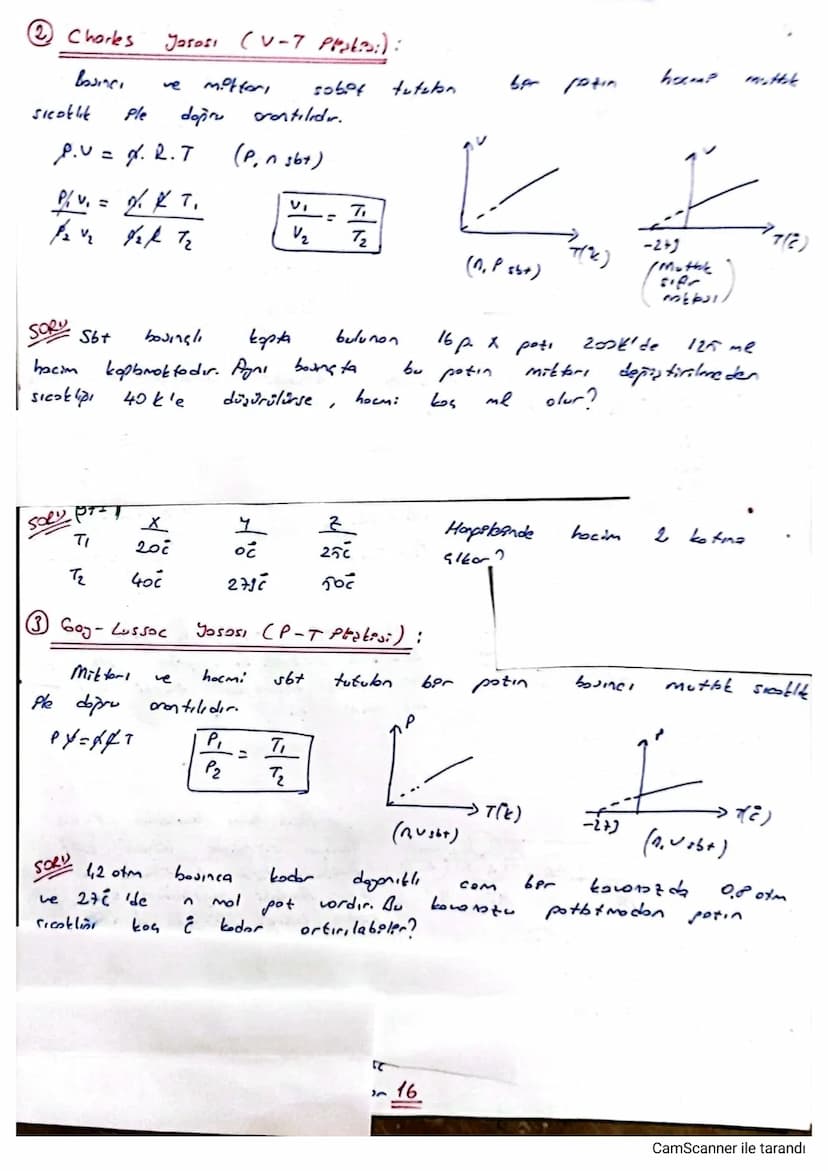 ② Charles Yasası (V-T İlişkisi):
Basıncı ve miktarı sabit tutulan bir gazın hacmi mutlak
sıcaklık ile doğru orantılıdır.
P.V = n.R.T (P, n sbt)
V
V
P₁ V₁ = n₁ R T₁
P₂ V₂ n₂ R T₂
V₁ = T₁
V₂ T₂
T(°k)
(n, P sbt)
-273
T(°C)
(Mutlak
sıfır
noktası)
SORU Sbt basınçlı kapta bulunan 16 g. X gazı 200K'de 125 ml
hacim kaplamaktadır. Aynı basınçta bu gazın miktarı değiştirilmeden
sıcaklığı 40 K'e düşürülürse, hacmi kaç ml olur?
SORU
X Y Z
T₁ 20°C 0°C 25°C
T₂ 40°C 273°C 50°C
Hangisinde hacim 2 katına
çıkar?
③ Gay-Lussac Yasası (P-T İlişkisi):
Miktarı ve hacmi sbt tutulan bir gazın basıncı mutlak sıcaklık
ile doğru orantılıdır.
P V = n R T
P₁ = T₁
P₂ T₂
P
T(°k)
(n V sbt)
P
-273
T(°C)
(n, V sbt)
SORU 1,2 atm basınca kadar dayanıklı cam bir kavanozda 0,8 atm
ve 27°C'de n mol gaz vardır. Bu kavanozu patlatmadan gazın
sıcaklığı kaç °C kadar artırılabilir?
16
CamScanner ile tarandı